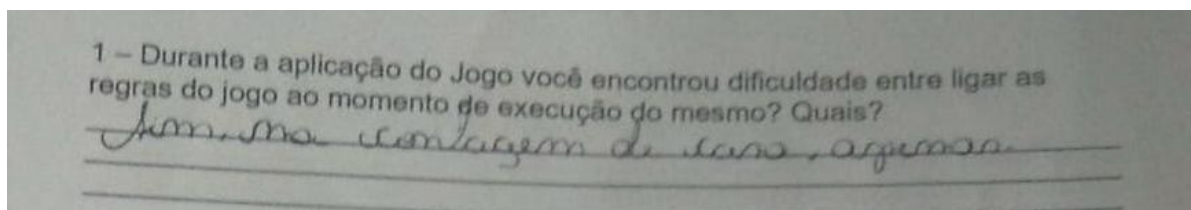 1 – Durante a aplicação do Jogo você encontrou dificuldade entre ligar as
regras do jogo ao momento de execução do mesmo? Quais?
Sim, na contagem de casa,